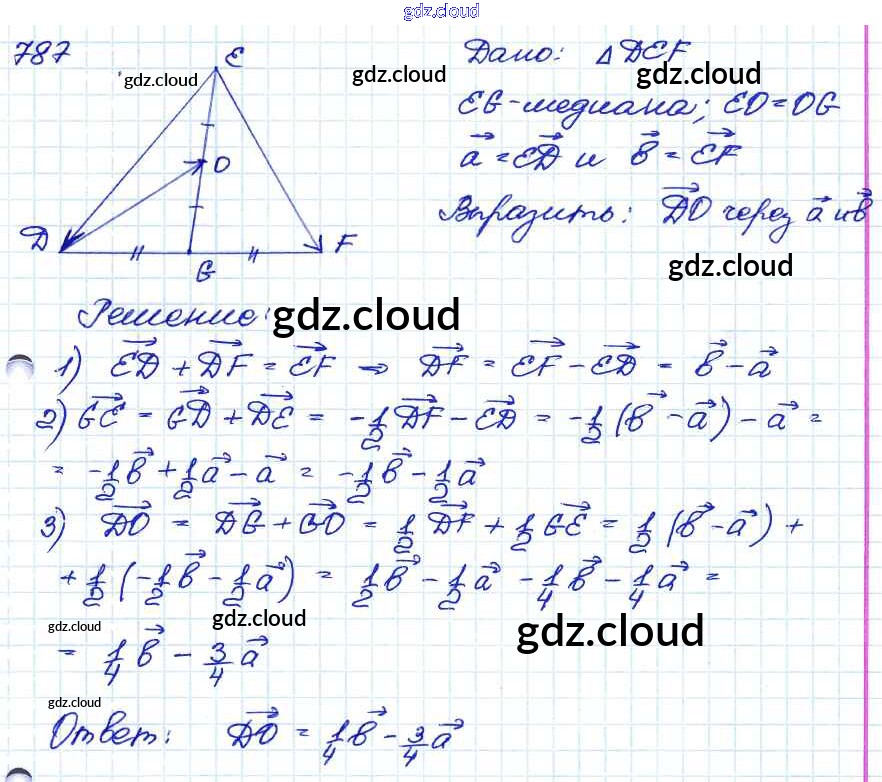 gdz.cloud
787
E
Дано: △DEF
gdz.cloud
gdz.cloud
gdz.cloud
EG-медиана; EO=OG
a⃗ = ED⃗ и b⃗ = EF⃗
O
Выразить: DO⃗ через a⃗ и b⃗
D
F
G
gdz.cloud
Решение:
gdz.cloud
1) ED⃗ + DF⃗ = EF⃗ ⇒ DF⃗ = EF⃗ - ED⃗ = b⃗ - a⃗
2) GE⃗ = GD⃗ + DE⃗ = -1/2 DF⃗ - ED⃗ = -1/2 (b⃗ - a⃗) - a⃗ =
= -1/2 b⃗ + 1/2 a⃗ - a⃗ = -1/2 b⃗ - 1/2 a⃗
3) DO⃗ = DG⃗ + GO⃗ = 1/2 DF⃗ + 1/2 GE⃗ = 1/2 (b⃗ - a⃗) +
+ 1/2 (-1/2 b⃗ - 1/2 a⃗) = 1/2 b⃗ - 1/2 a⃗ - 1/4 b⃗ - 1/4 a⃗ =
gdz.cloud
gdz.cloud
gdz.cloud
= 1/4 b⃗ - 3/4 a⃗
gdz.cloud
Ответ: DO⃗ = 1/4 b⃗ - 3/4 a⃗